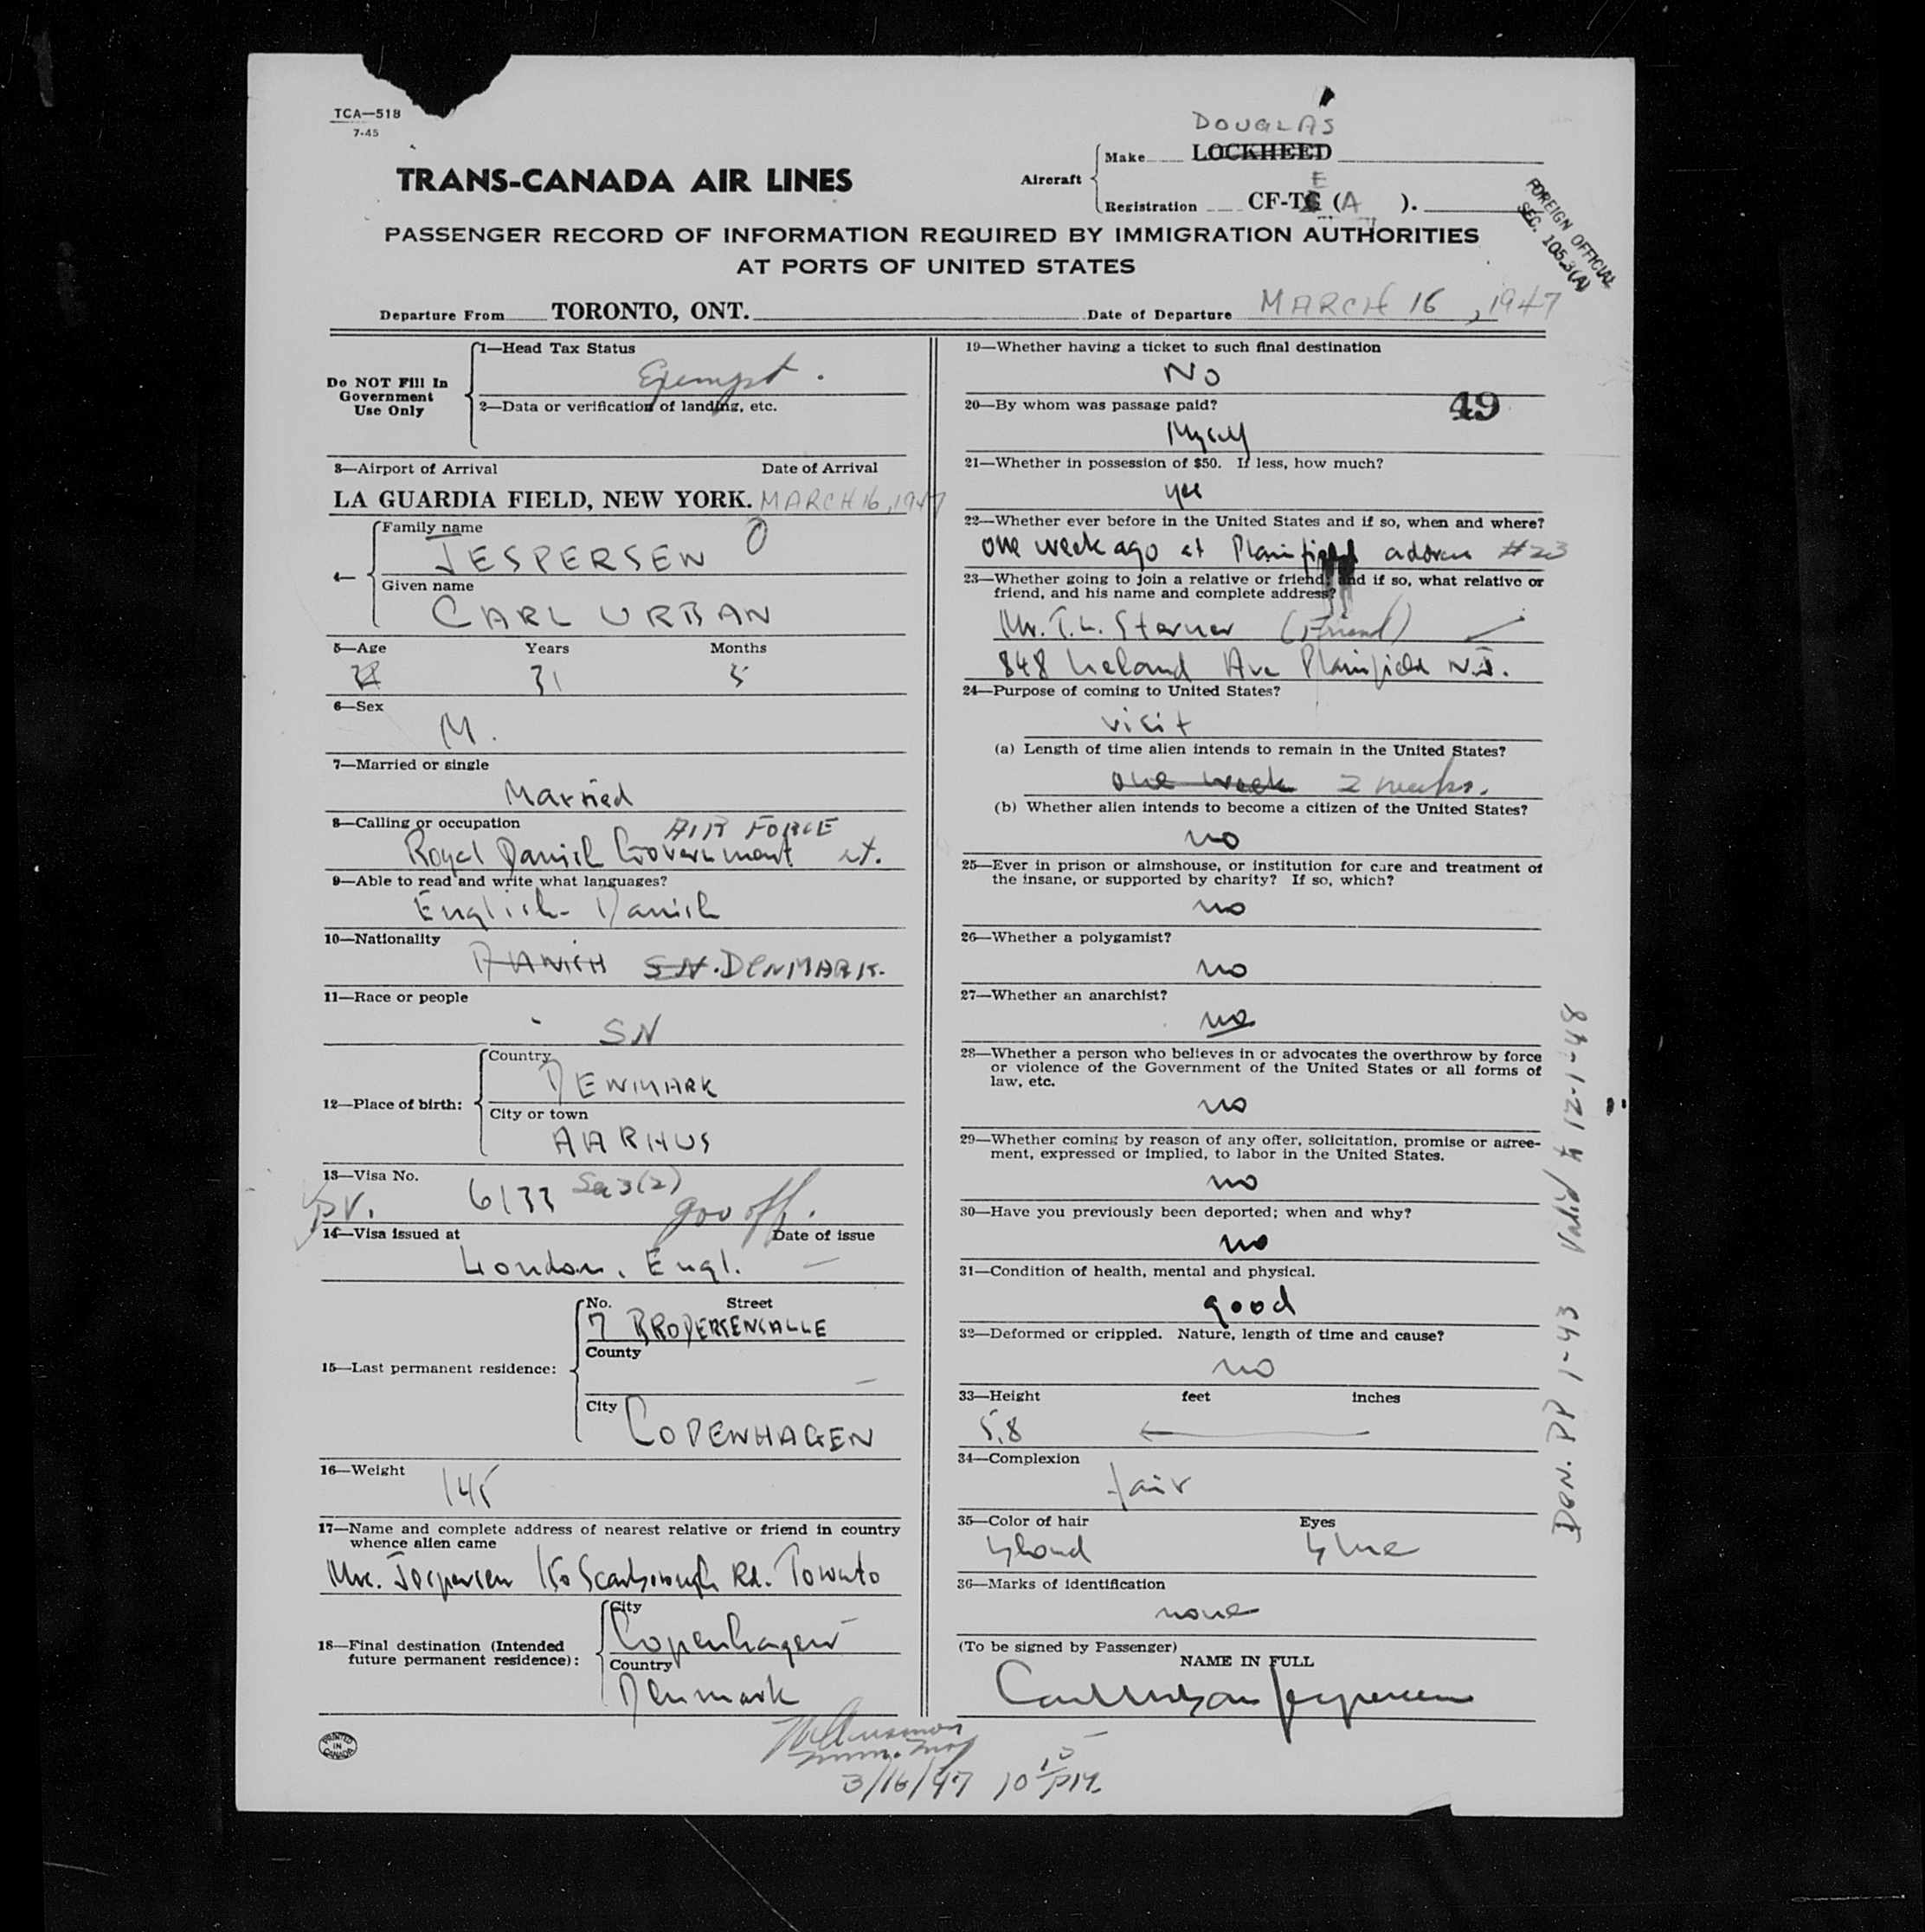 TCA—518
7-45
TRANS-CANADA AIR LINES
Aircraft
DOUGLAS
Make LOCKHEED
E
Registration CF-T (A ).
FOREIGN OFFICIAL
SEC. 105.3(A)
PASSENGER RECORD OF INFORMATION REQUIRED BY IMMIGRATION AUTHORITIES
AT PORTS OF UNITED STATES
Departure From TORONTO, ONT. Date of Departure MARCH 16, 1947
Do NOT Fill In
Government
Use Only
1—Head Tax Status
Exempt.
2—Data or verification of landing, etc.
3—Airport of Arrival Date of Arrival
LA GUARDIA FIELD, NEW YORK. MARCH 16, 1947
4—
Family name
JESPERSEN O
Given name
CARL URBAN
5—Age Years Months
31 5
6—Sex
M.
7—Married or single
Married
8—Calling or occupation
AIR FORCE
Royal Danish Government
9—Able to read and write what languages?
English - Danish
10—Nationality
DANISH SN. DENMARK.
11—Race or people
SN
12—Place of birth:
Country
DENMARK
City or town
AARHUS
13—Visa No.
PV. 6133 Sec 3(2) gov off.
14—Visa issued at Date of issue
London, Engl. —
15—Last permanent residence:
No. Street
7 BRODERSENSALLE
County
—
City
COPENHAGEN
16—Weight
145
17—Name and complete address of nearest relative or friend in country
whence alien came
Mrs. Jespersen 150 Scarborough Rd. Toronto
18—Final destination (Intended
future permanent residence):
City
Copenhagen
Country
Denmark
PRINTED
IN
CANADA
19—Whether having a ticket to such final destination
No
49
20—By whom was passage paid?
Myself
21—Whether in possession of $50. If less, how much?
yes
22—Whether ever before in the United States and if so, when and where?
one week ago at Plainfield address #23
23—Whether going to join a relative or friend; and if so, what relative or
friend, and his name and complete address?
Mr. T.L. Sterner (Friend)
848 Leland Ave Plainfield N.J.
24—Purpose of coming to United States?
visit
(a) Length of time alien intends to remain in the United States?
one week 2 weeks.
(b) Whether alien intends to become a citizen of the United States?
no
25—Ever in prison or almshouse, or institution for care and treatment of
the insane, or supported by charity? If so, which?
no
26—Whether a polygamist?
no
27—Whether an anarchist?
no
28—Whether a person who believes in or advocates the overthrow by force
or violence of the Government of the United States or all forms of
law, etc.
no
29—Whether coming by reason of any offer, solicitation, promise or agree-
ment, expressed or implied, to labor in the United States.
no
30—Have you previously been deported; when and why?
no
31—Condition of health, mental and physical.
good
32—Deformed or crippled. Nature, length of time and cause?
no
33—Height feet inches
5.8
34—Complexion
fair
35—Color of hair Eyes
blond blue
36—Marks of identification
none
(To be signed by Passenger)
NAME IN FULL
Carl Urban Jespersen
3/16/47 10 15 PM.
Den. PP 1-43 Valid to 12-1-48